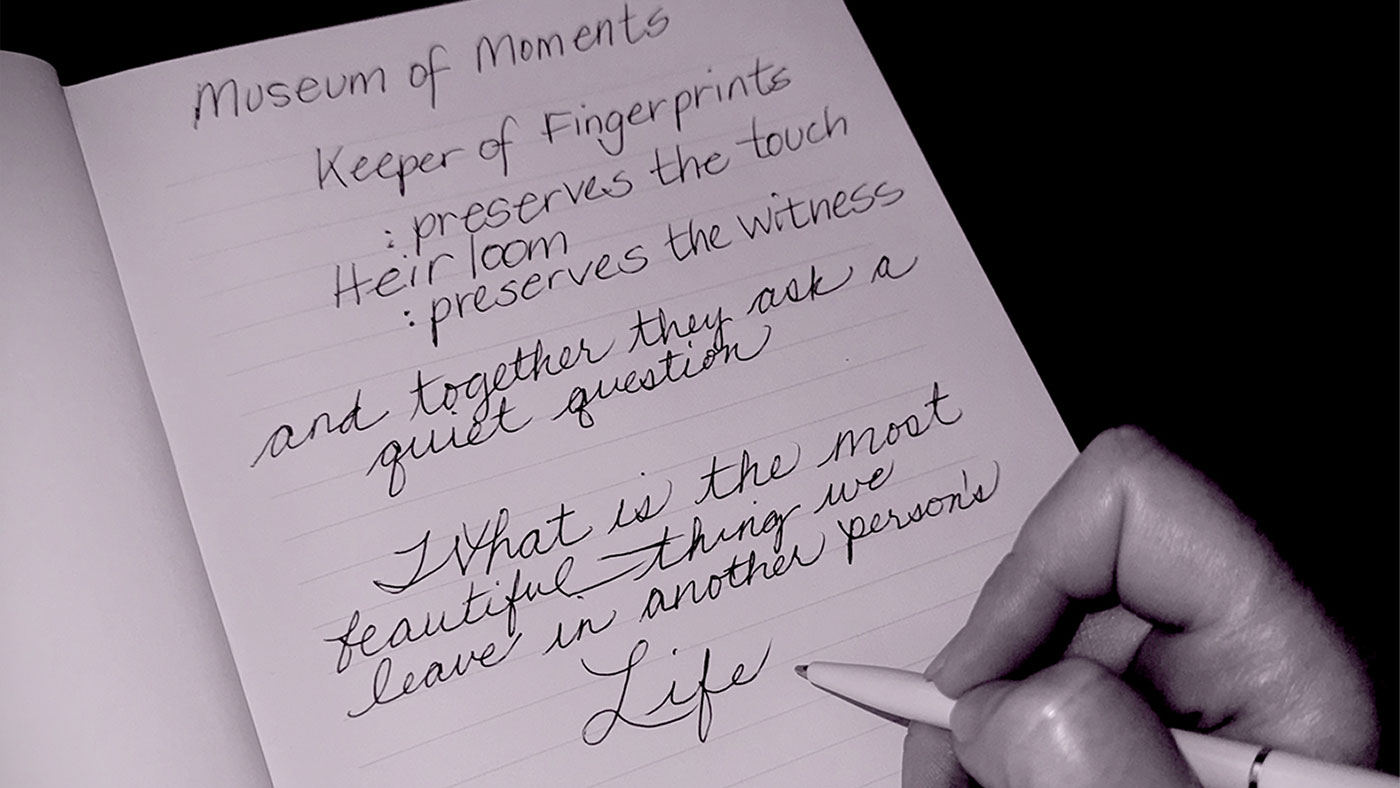 Museum of Moments
Keeper of Fingerprints
: preserves the touch
Heirloom
: preserves the witness
and together they ask a
quiet question
What is the most
beautiful thing we
leave in another person's
Life